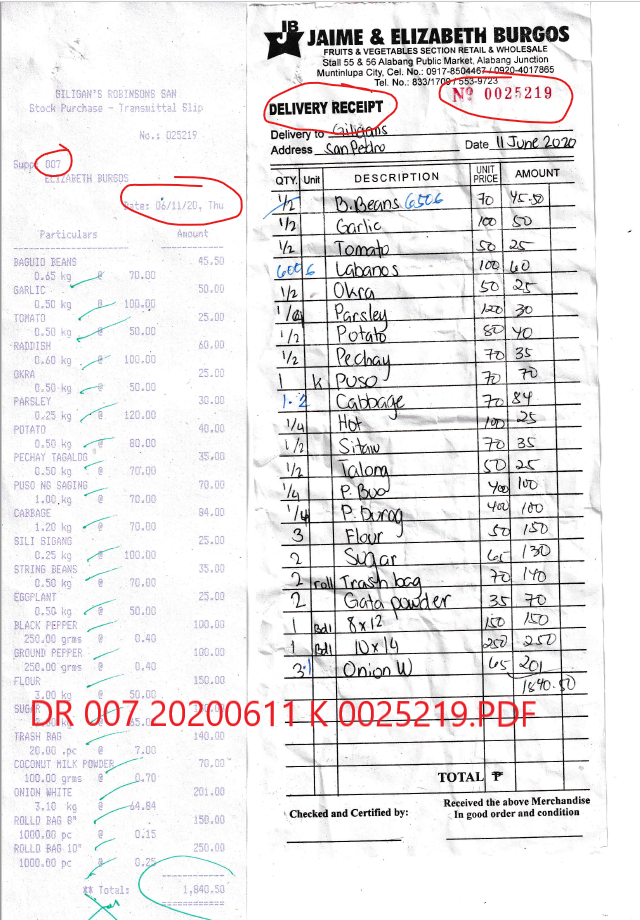 GILIGAN'S ROBINSONS SAN
Stock Purchase - Transmittal Slip
No.: 025219
Supp 007
ELIZABETH BURGOS
Date: 06/11/20, Thu
Particulars Amount
BAGUIO BEANS 45.50
0.65 kg @ 70.00
GARLIC 50.00
0.50 kg @ 100.00
TOMATO 25.00
0.50 kg @ 50.00
RADDISH 60.00
0.60 kg @ 100.00
OKRA 25.00
0.50 kg @ 50.00
PARSLEY 30.00
0.25 kg @ 120.00
POTATO 40.00
0.50 kg @ 80.00
PECHAY TAGALOG 35.00
0.50 kg @ 70.00
PUSO NG SAGING 70.00
1.00 kg @ 70.00
CABBAGE 84.00
1.20 kg @ 70.00
SILI SIGANG 25.00
0.25 kg @ 100.00
STRING BEANS 35.00
0.50 kg @ 70.00
EGGPLANT 25.00
0.50 kg @ 50.00
BLACK PEPPER 100.00
250.00 grms @ 0.40
GROUND PEPPER 100.00
250.00 grms @ 0.40
FLOUR 150.00
3.00 kg @ 50.00
SUGAR
65.00
TRASH BAG 140.00
20.00 .pc @ 7.00
COCONUT MILK POWDER 70.00
100.00 grms @ 0.70
ONION WHITE 201.00
3.10 kg @ 64.84
ROLLO BAG 8" 150.00
1000.00 pc @ 0.15
ROLLO BAG 10" 250.00
1000.00 pc @ 0.25
** Total: 1,840.50
JB
JAIME & ELIZABETH BURGOS
FRUITS & VEGETABLES SECTION RETAIL & WHOLESALE
Stall 55 & 56 Alabang Public Market, Alabang Junction
Muntinlupa City, Cel. No.: 0917-8504467 / 0920-4017865
Tel. No.: 833/1700 / 553-9723
Nº 0025219
DELIVERY RECEIPT
Delivery to Giligans
Address San Pedro Date 11 June 2020
QTY. Unit DESCRIPTION UNIT PRICE AMOUNT
1/2 B.Beans 650G 70 45.50
1/2 Garlic 100 50
1/2 Tomato 50 25
600 G Labanos 100 60
1/2 Okra 50 25
1/4 Parsley 120 30
1/2 Potato 80 40
1/2 Pechay 70 35
1 K Puso 70 70
1.2 Cabbage 70 84
1/4 Hot 100 25
1/2 Sitaw 70 35
1/2 Talong 50 25
1/4 P. Buo 400 100
1/4 P. Durog 400 100
3 Flour 50 150
2 Sugar 65 130
2 roll Trash bag 70 140
2 Gata powder 35 70
1 Bdl 8x12 150 150
1 Bdl 10x14 250 250
3.1 Onion W 65 201
1840.50
DR 007 20200611 K 0025219.PDF
TOTAL ₱
Checked and Certified by:
Received the above Merchandise
In good order and condition